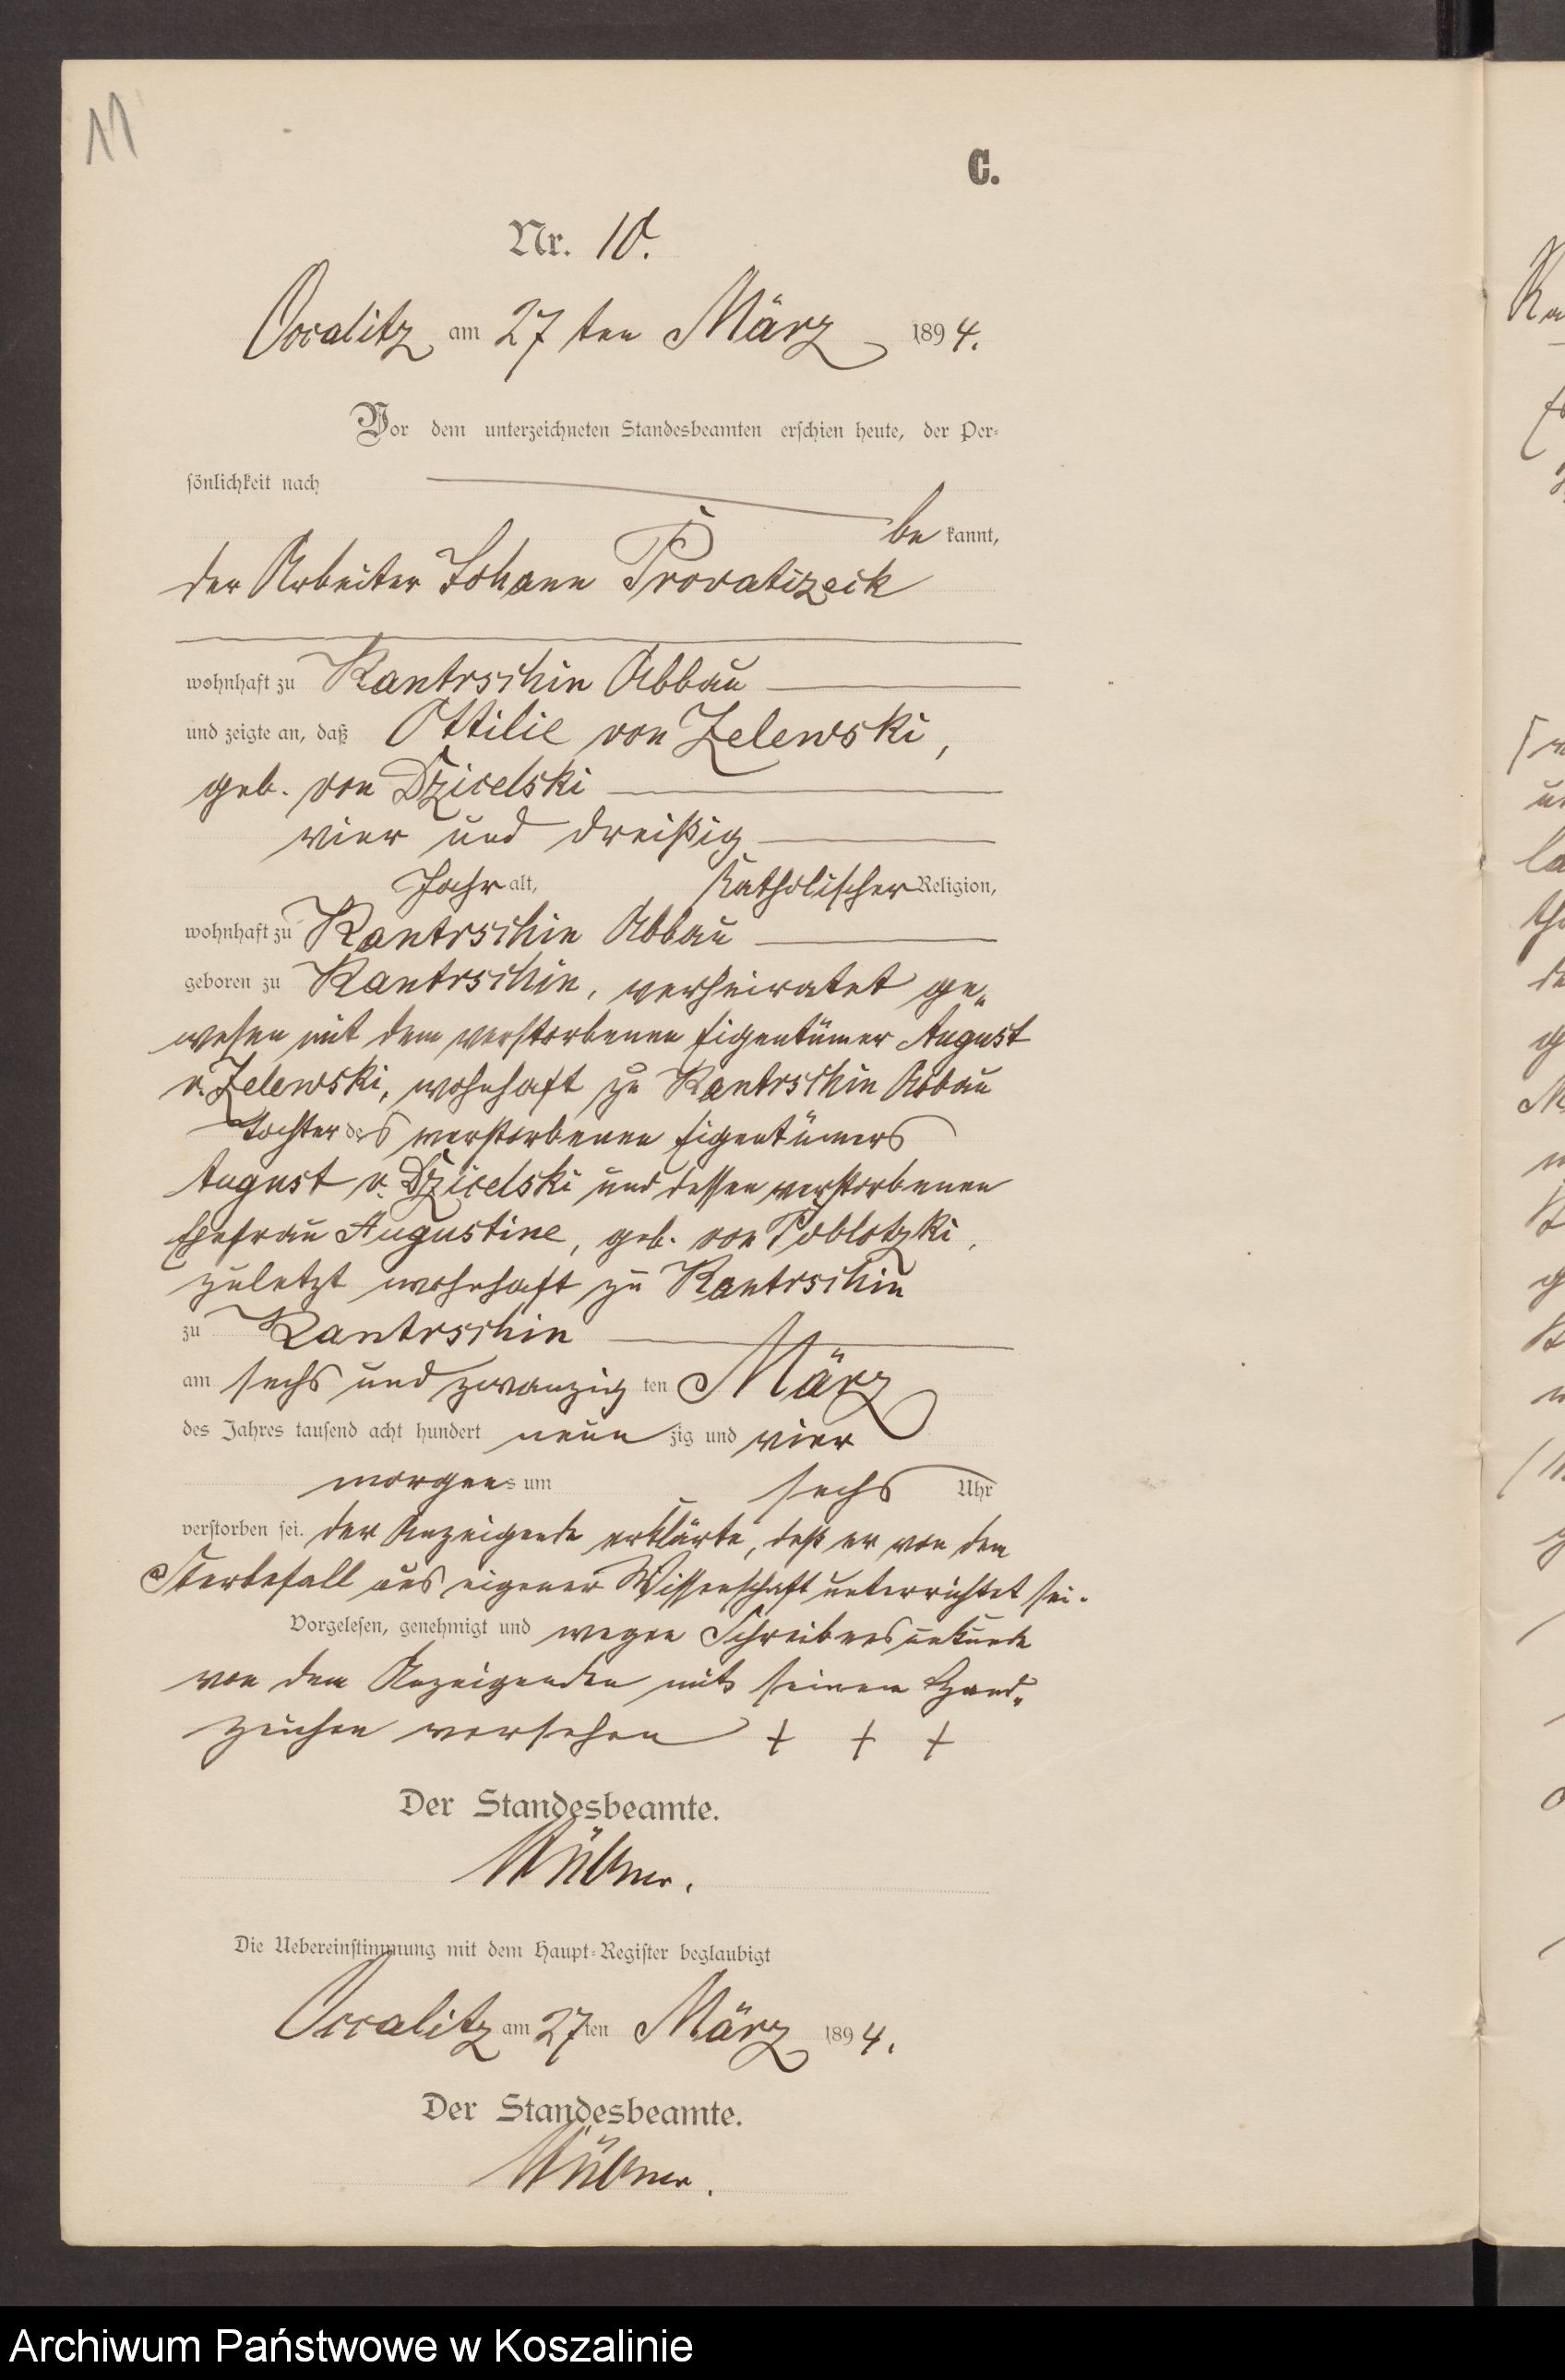 11
C.
Nr. 10.
Occalitz am 27 ten März 1894.
Vor dem unterzeichneten Standesbeamten erschien heute, der Per-
sönlichkeit nach
be kannt,
der Arbeiter Johann Provatizeik
wohnhaft zu Kantrschin Abbau
und zeigte an, daß Ottilie von Zelewski,
geb. von Dzicelski
vier und dreißig
Jahr alt, katholischer Religion,
wohnhaft zu Kantrschin Abbau
geboren zu Kantrschin, verheiratet ge„
wesen mit dem verstorbenen Eigentümer August
v. Zelewski, wohnhaft zu Kantrschin Abbau
Tochter des verstorbenen Eigentümers
August v. Dzicelski und dessen verstorbenen
Ehefrau Augustine, geb. von Poblotzki,
zuletzt wohnhaft zu Kantrschin
zu Kantrschin
am sechs und zwanzig ten März
des Jahres tausend acht hundert neun zig und vier
morgens um sechs Uhr
verstorben sei. Der Anzeigende erklärte, daß er von dem
Sterbefall aus eigener Wissenschaft unterrichtet sei.
Vorgelesen, genehmigt und wegen Schreibensunkunde
von dem Anzeigenden mit seinem Hand„
zeichen versehen + + +
Der Standesbeamte.
Die Uebereinstimmung mit dem Haupt-Register beglaubigt
Occalitz am 27ten März 1894.
Der Standesbeamte.
Archiwum Państwowe w Koszalinie